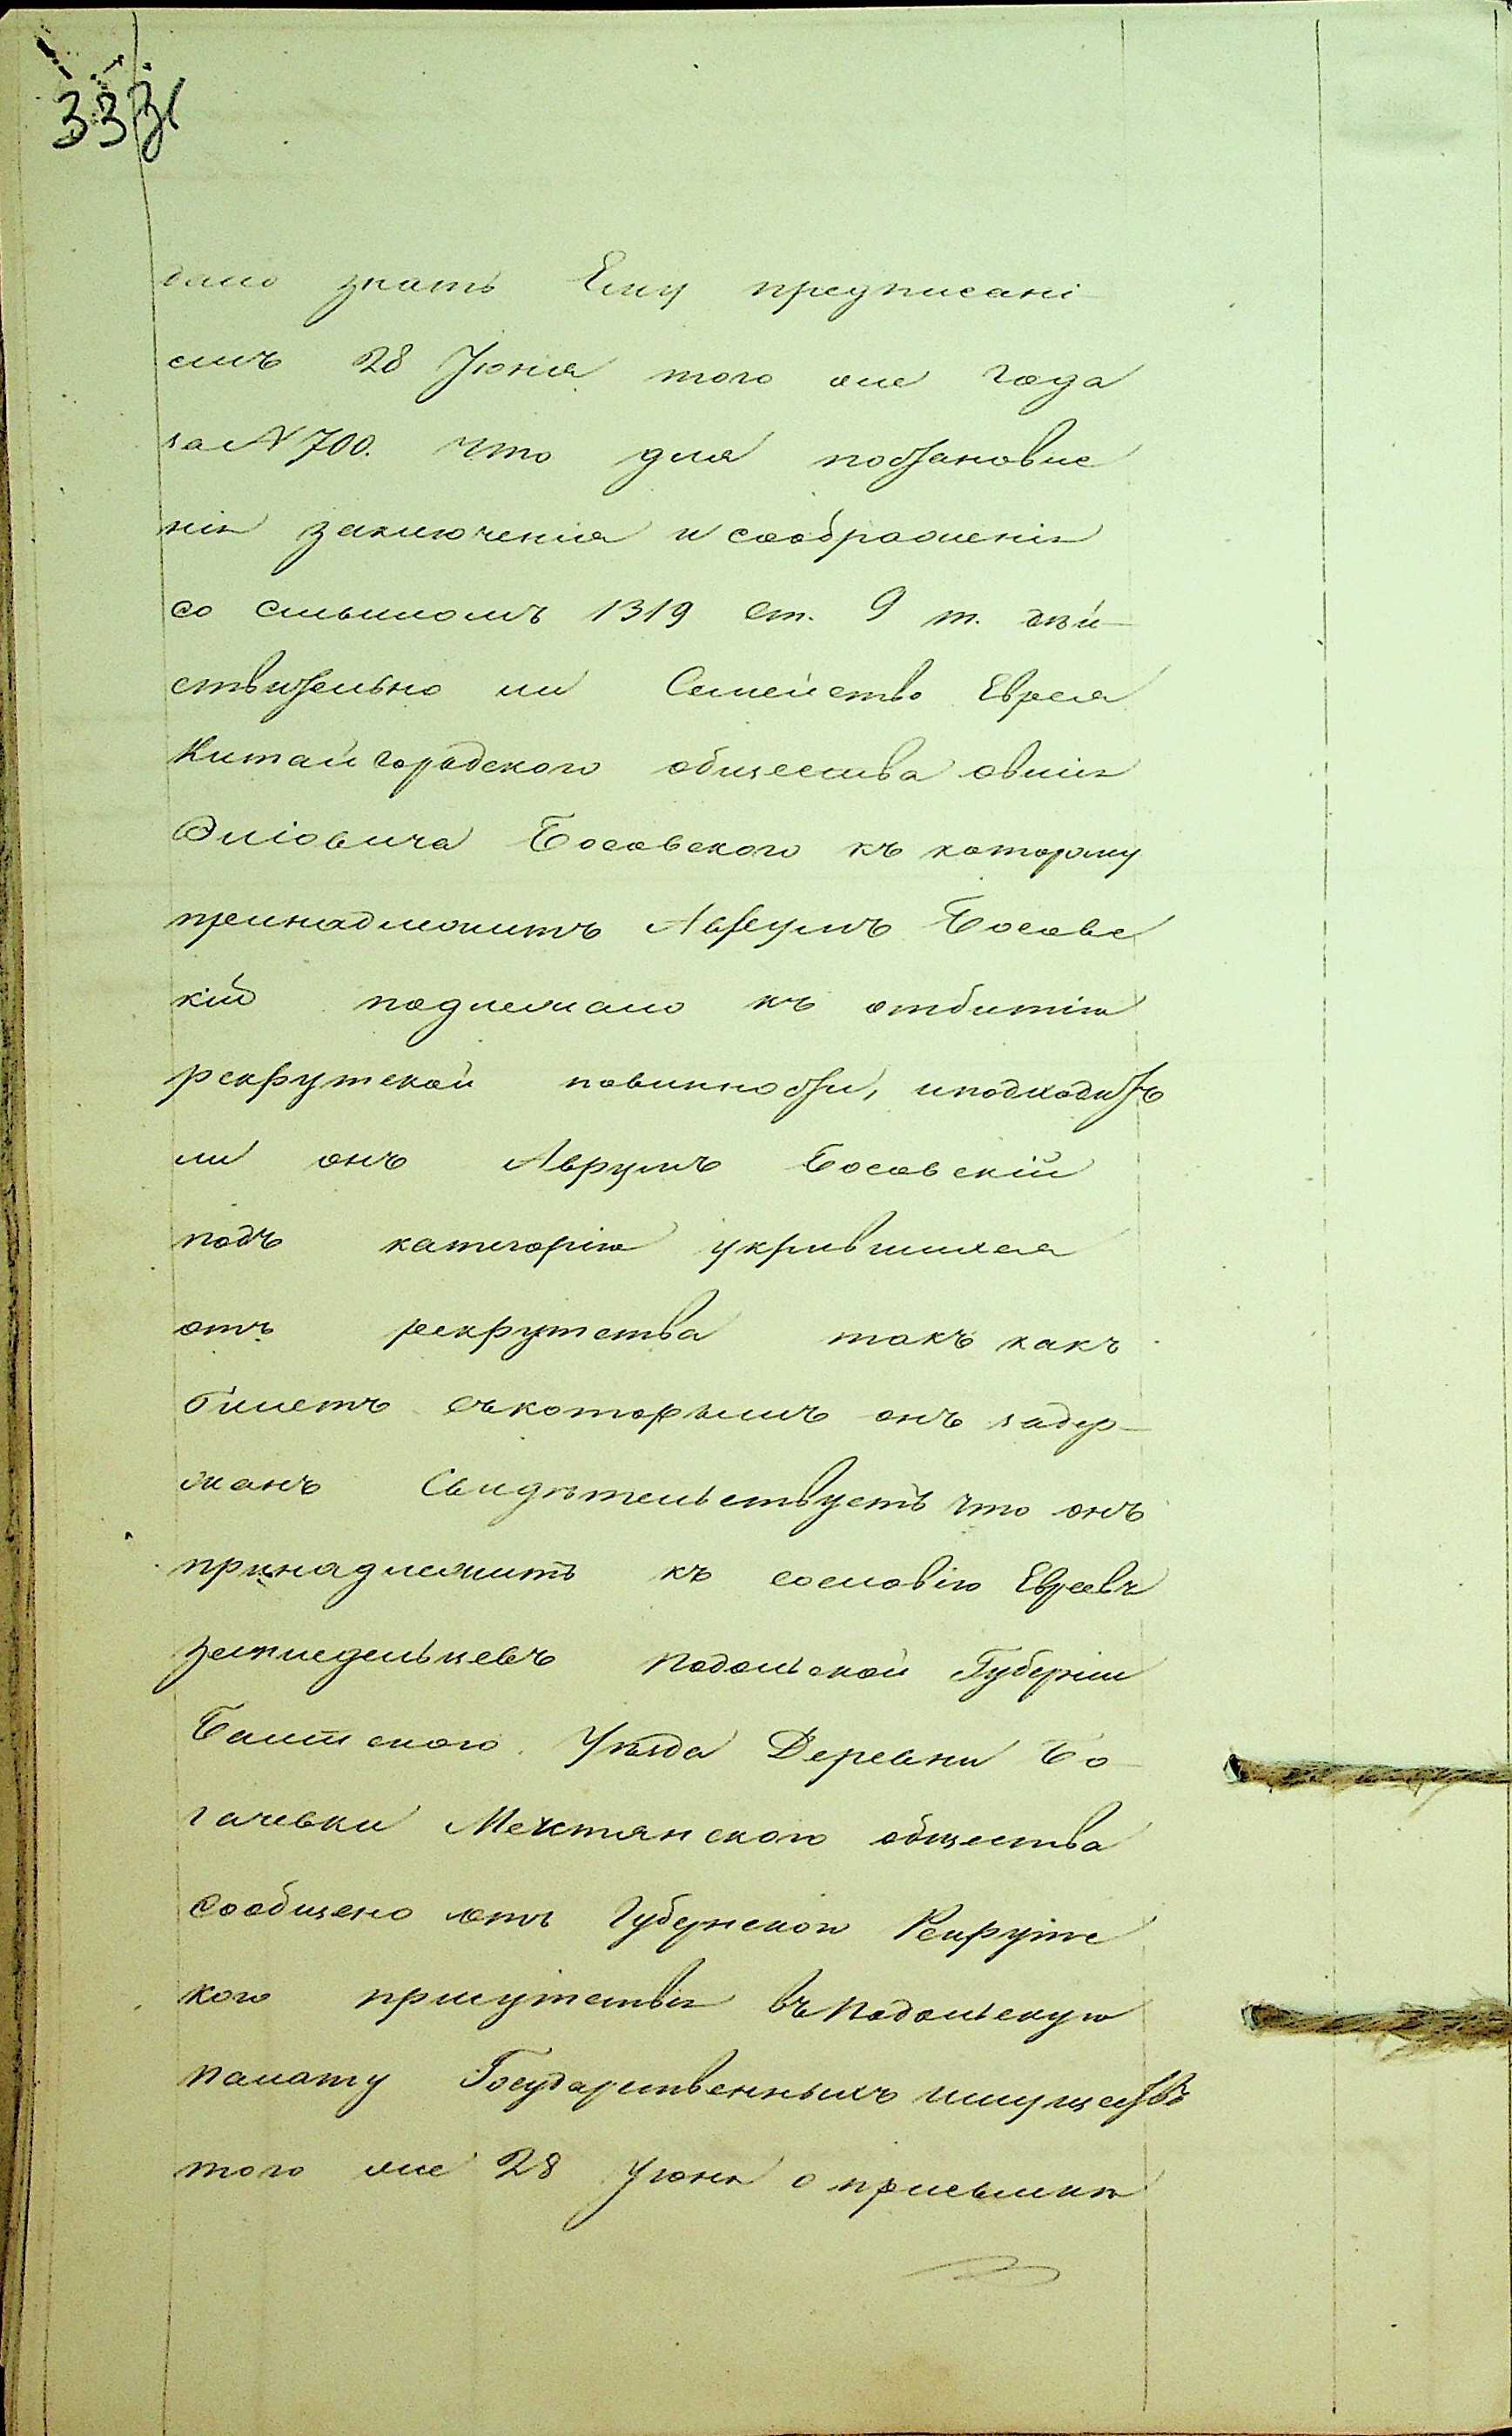 дано знать Ему предписані-
емъ 28 Іюня того же года
за № 700. что для постановле
нія заключенія и соображенія
со смысломъ 1319 ст. 9 т. дѣй-
ствительно ли Семейство Еврея
Китайгородского общества Овшія
Эліовича Босовского къ которому
пренадлежитъ Аврумъ Босовс
кій подлежало къ отбитію
рекрутской повинности, и подходитъ
ли онъ Аврумъ Босовскій
подъ категорію укрившихся
отъ рекрутства такъ какъ
билетъ съ которымъ онъ задер-
жанъ Свидѣтельствуетъ что онъ
принадлежитъ къ сословію Евреевъ
земледельцевъ Подольской Губерніи
Балтского Уѣзда Деревни Бо-
гачевки Мехтянского общества
сообщено отъ Губернского Рекрутс
кого присутствія въ Подольскую
палату Государственныхъ имуществъ
того же 28 Іюня о присылкѣ